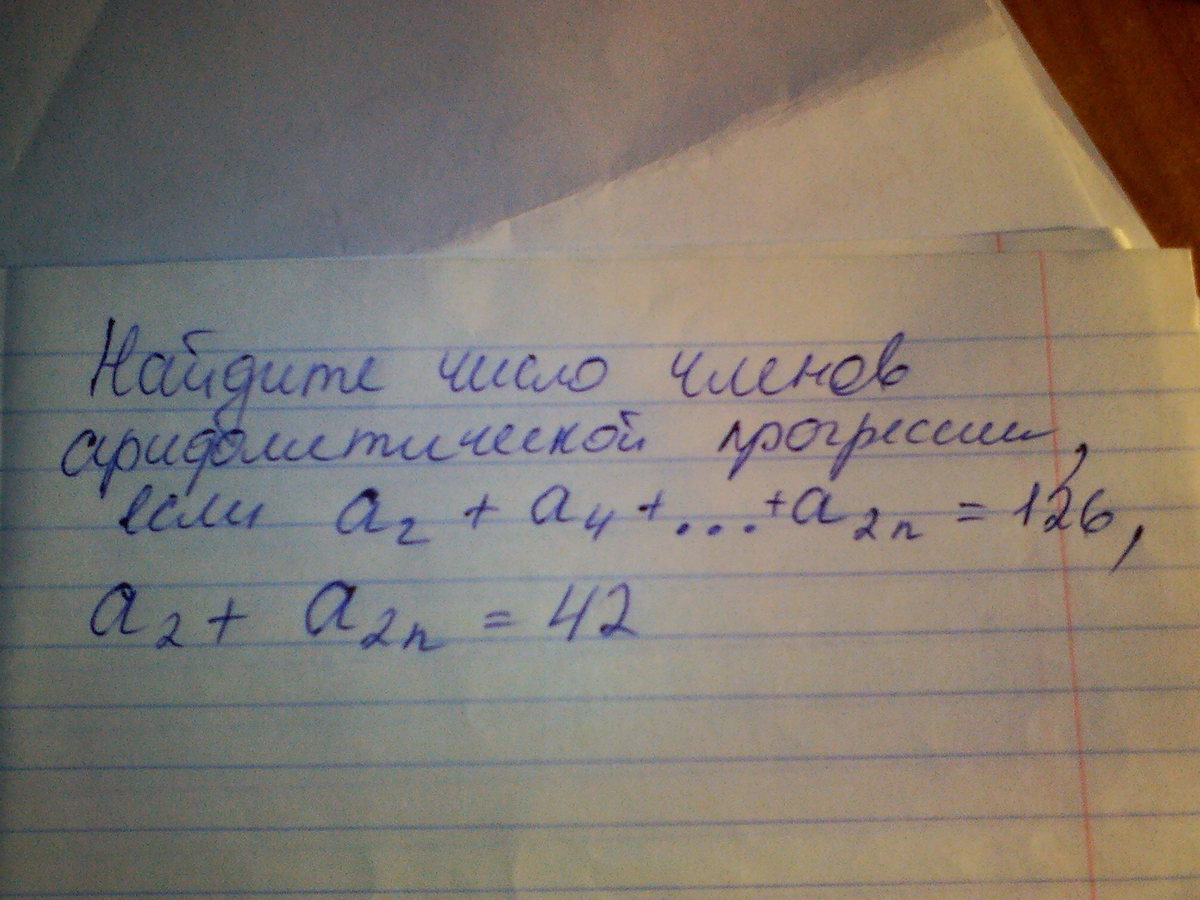 Найдите число членов
арифметической прогрессии,
если a₂ + a₄ + ... + a₂ₙ = 126,
a₂ + a₂ₙ = 42